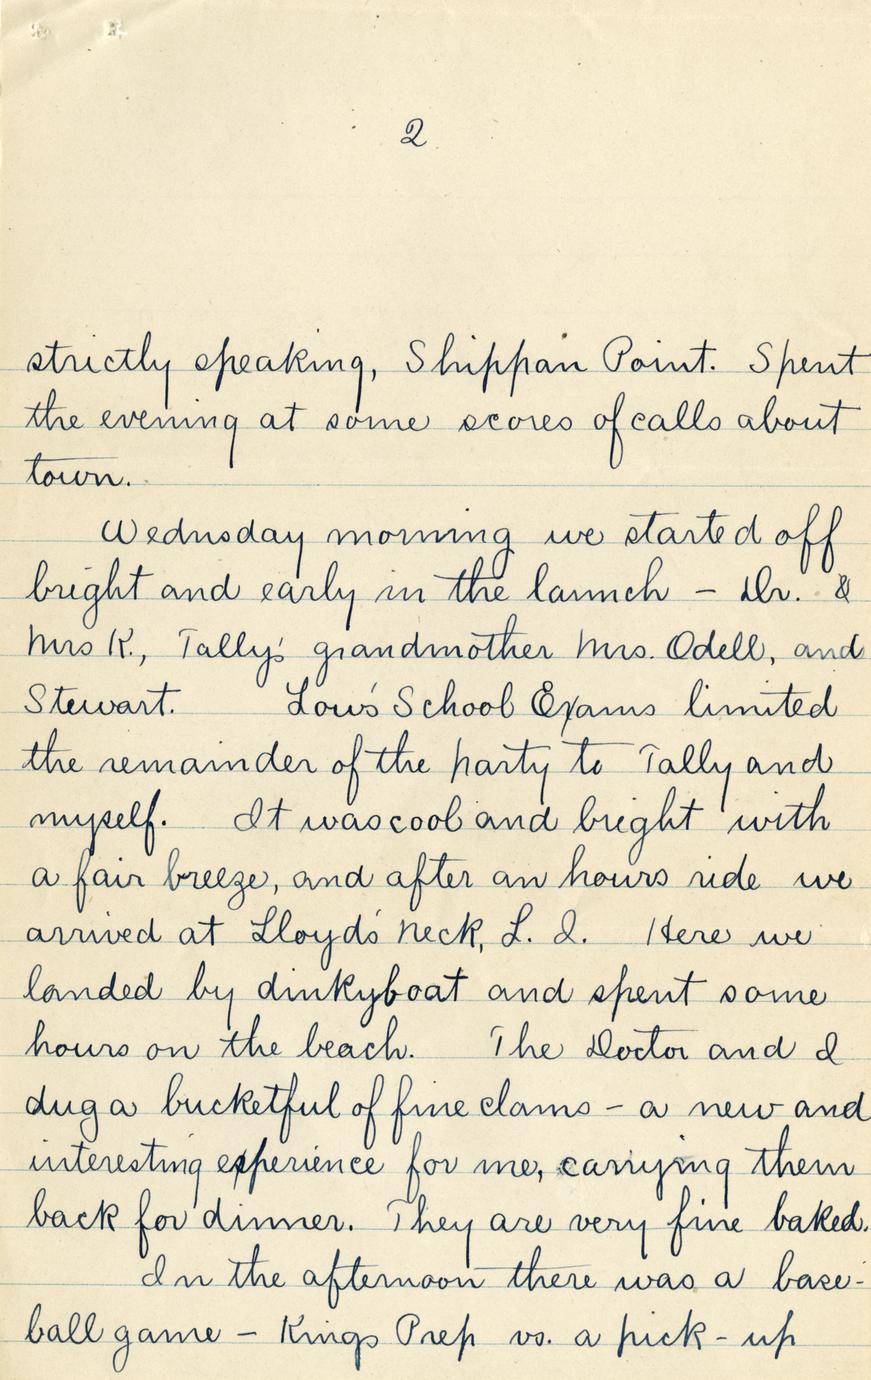 2
strictly speaking, Shippan Point. Spent
the evening at some scores of calls about
town.
Wednsday morning we started off
bright and early in the launch - Dr. &
Mrs K., Tally's grandmother Mrs. Odell, and
Stewart. Low's School Exams limited
the remainder of the party to Tally and
myself. It was cool and bright with
a fair breeze, and after an hours ride we
arrived at Lloyds' Neck, L. I. Here we
landed by dinkyboat and spent some
hours on the beach. The Doctor and I
dug a bucketful of fine clams - a new and
interesting experience for me, carrying them
back for dinner. They are very fine baked.
In the afternoon there was a base-
ball game - Kings Prep vs. a pick-up